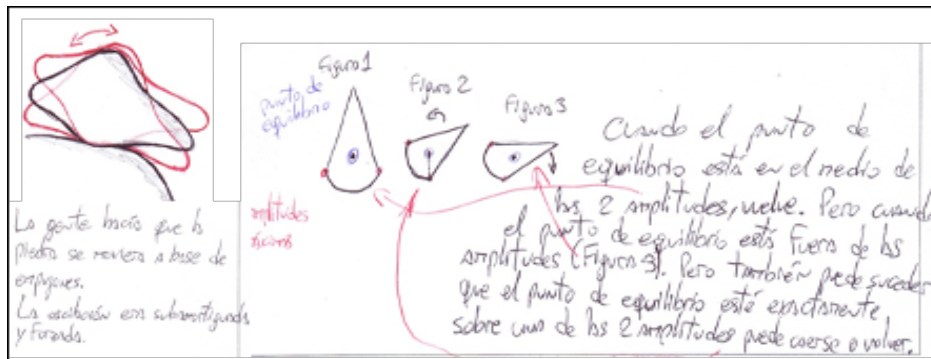 La gente hacía que la
piedra se moviera a base de
empujones.
La oscilación era subamortiguada
y forzada.
Figura 1
punto de
equilibrio
Figura 2
Figura 3
amplitudes
máximas
Cuando el punto de
equilibrio está en el medio de
las 2 amplitudes, vuelve. Pero cuando
el punto de equilibrio está fuera de las
amplitudes (Figura 3). Pero también puede suceder
que el punto de equilibrio esté exactamente
sobre una de las 2 amplitudes puede caerse o volver.